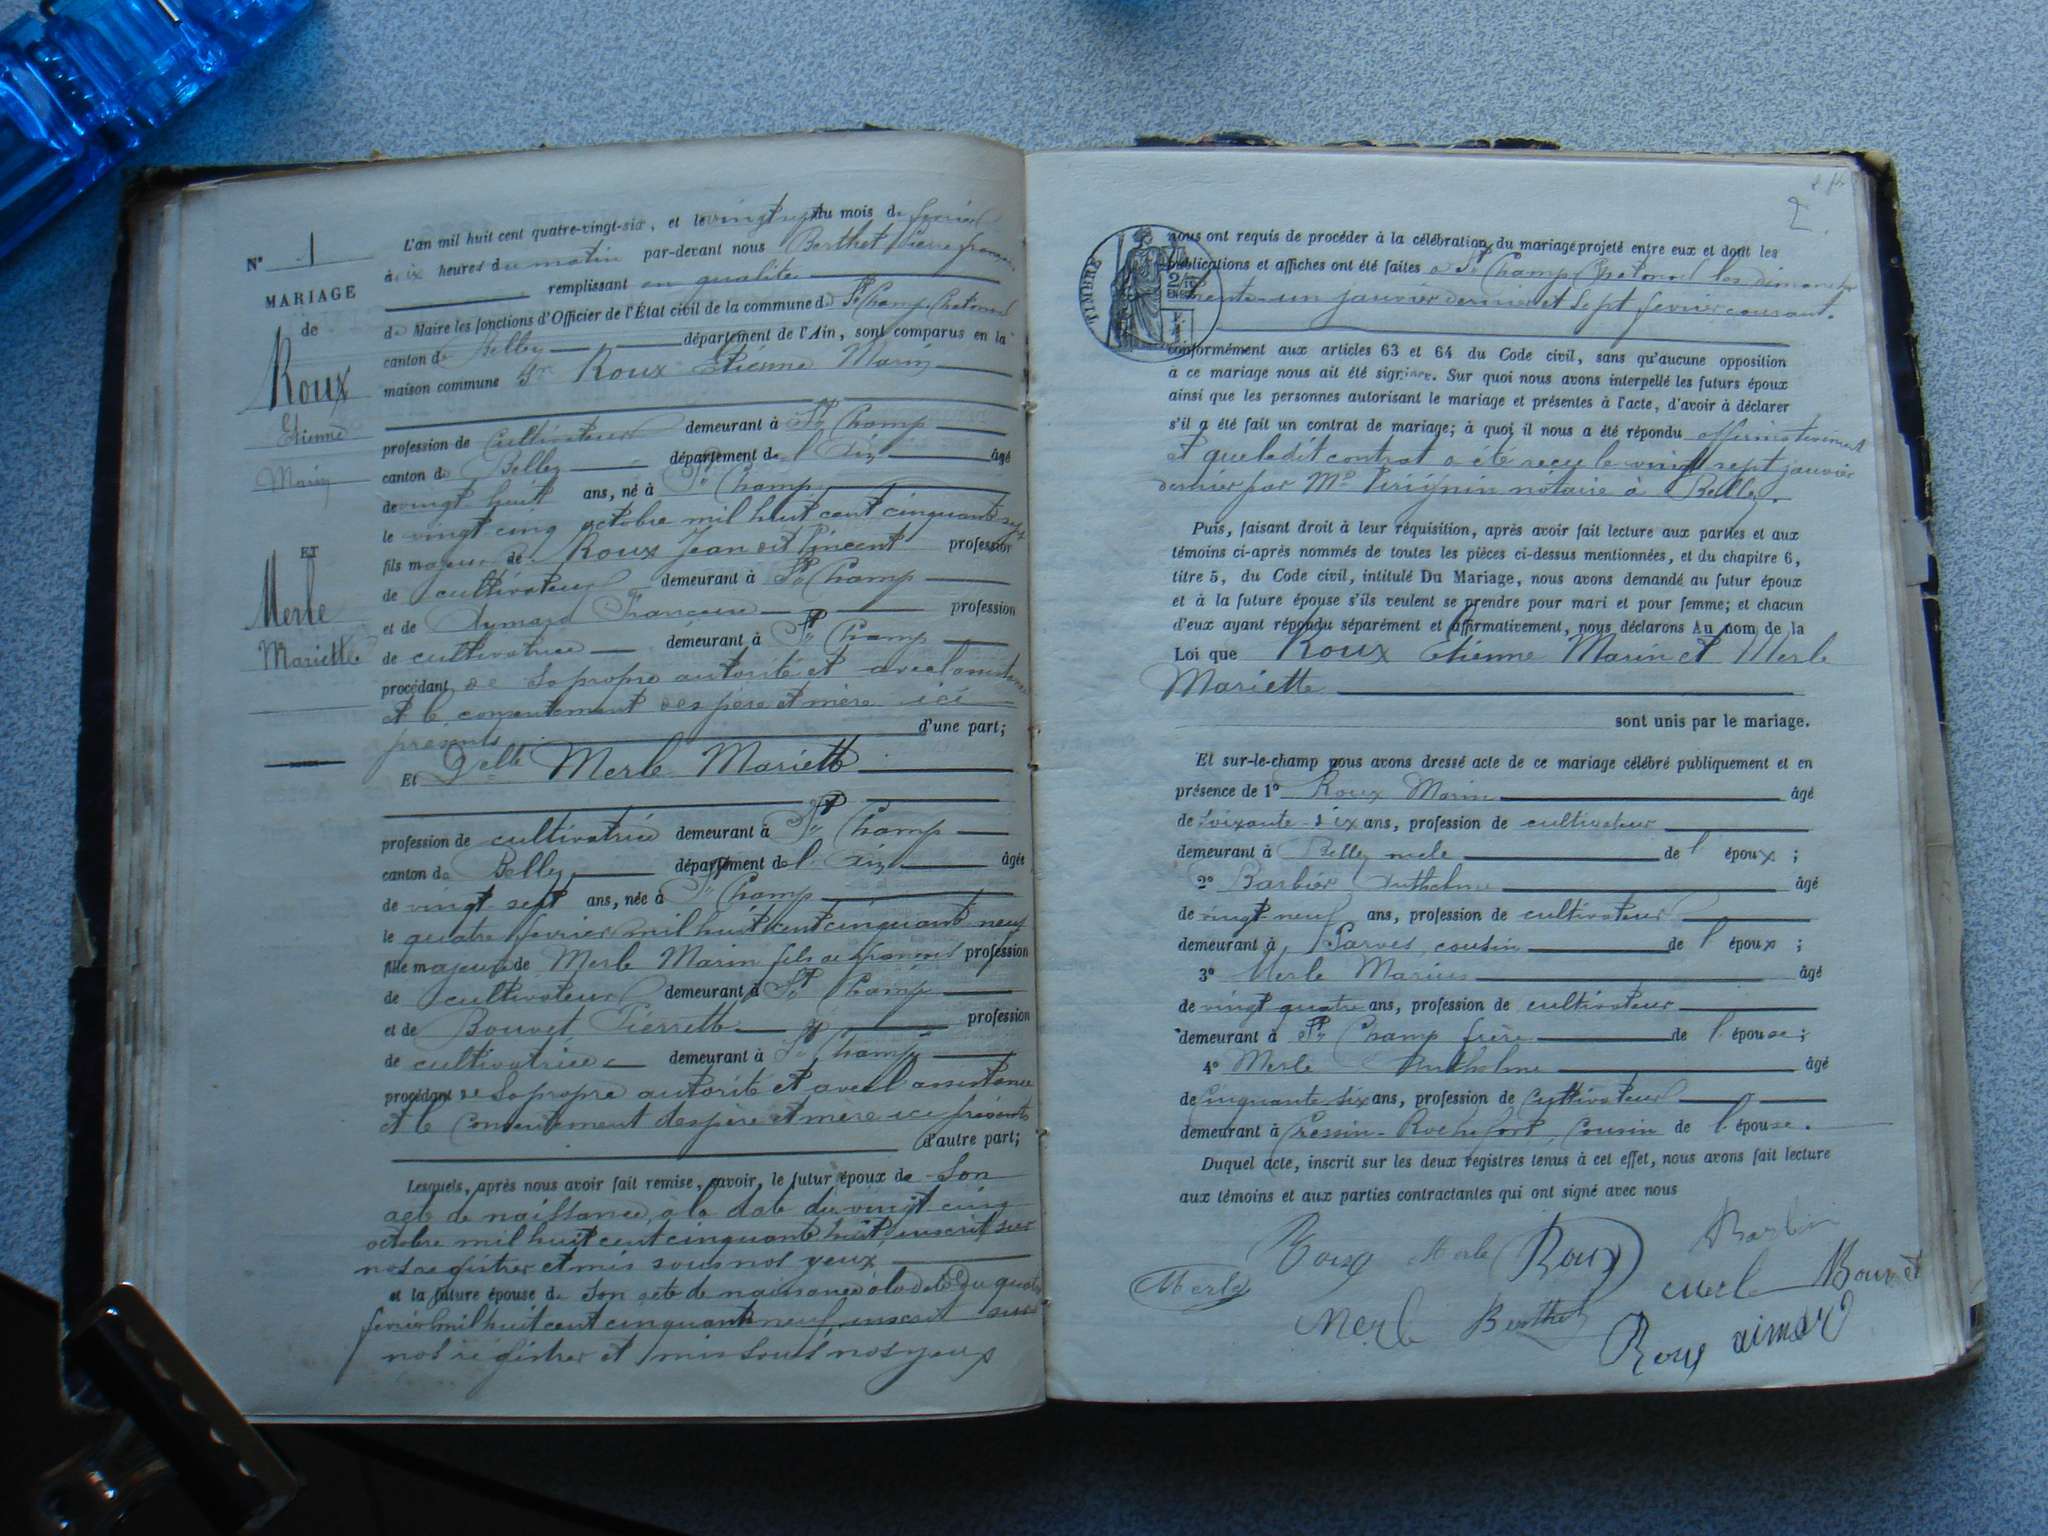 N° 1
MARIAGE
de
Roux
Etienne
Marin
ET
Merle
Mariette
L'an mil huit cent quatre-vingt-six, et le vingt sept du mois de février
à dix heures du matin par-devant nous Berthet Pierre
remplissant en qualité
de Maire les fonctions d'Officier de l'État civil de la commune de St Champ Chatonod
canton de Belley département de l'Ain, sont comparus en la
maison commune Sr Roux Etienne Marin
profession de Cultivateur demeurant à St Champ
canton de Belley département de l'Ain âgé
de vingt huit ans, né à St Champ
le vingt cinq octobre mil huit cent cinquante sept
fils majeur de Roux Jean dit Vincent profession
de cultivateur demeurant à St Champ
et de Aymard Françoise profession
de cultivatrice demeurant à St Champ
procédant de sa propre autorité et avec l'assistance
et le consentement des père et mère ici
présents d'une part;
Et Delle Merle Mariette
profession de cultivatrice demeurant à St Champ
canton de Belley département de l'Ain âgée
de vingt sept ans, née à St Champ
le quatre février mil huit cent cinquante neuf
fille majeure de Merle Marin fils de francois profession
de cultivateur demeurant à St Champ
et de Bouvet Pierrette profession
de cultivatrice demeurant à St Champ
procédant de sa propre autorité et avec l'assistance
et le Consentement des père et mère ici présents
d'autre part;
Lesquels, après nous avoir fait remise, savoir, le futur époux de son
acte de naissance, à la date du vingt cinq
octobre mil huit cent cinquante huit, inscrit sur
nos registres et mis sous nos yeux
et la future épouse de son acte de naissance à la date du quatre
fevrier mil huit cent cinquante neuf inscrit sur
nos registres et mis sous nos yeux
2
TIMBRE
nous ont requis de procéder à la célébration du mariage projeté entre eux et dont les
publications et affiches ont été faites à St Champ Chatonod les dimanche
trente un janvier dernier et sept fevrier courant.
conformément aux articles 63 et 64 du Code civil, sans qu'aucune opposition
à ce mariage nous ait été signifiée. Sur quoi nous avons interpellé les futurs époux
ainsi que les personnes autorisant le mariage et présentes à l'acte, d'avoir à déclarer
s'il a été fait un contrat de mariage; à quoi il nous a été répondu affirmativement
et que ledit contrat a été reçu le vingt sept janvier
dernier par Me notaire à Belley.
Puis, faisant droit à leur réquisition, après avoir fait lecture aux parties et aux
témoins ci-après nommés de toutes les pièces ci-dessus mentionnées, et du chapitre 6,
titre 5, du Code civil, intitulé Du Mariage, nous avons demandé au futur époux
et à la future épouse s'ils veulent se prendre pour mari et pour femme; et chacun
d'eux ayant répondu séparément et affirmativement, nous déclarons Au nom de la
Loi que Roux Etienne Marin et Merle
Mariette
sont unis par le mariage.
Et sur-le-champ nous avons dressé acte de ce mariage célébré publiquement et en
présence de 1° Roux Marin âgé
de soixante-dix ans, profession de cultivateur
demeurant à Belley oncle de l'époux;
2° Barbier Anthelme âgé
de vingt-neuf ans, profession de cultivateur
demeurant à Parves, cousin de l'époux;
3° Merle Marius âgé
de vingt quatre ans, profession de cultivateur
demeurant à St Champ frère de l'épouse;
4° Merle Anthelme âgé
de Cinquante six ans, profession de Cultivateur
demeurant à Cressin-Rochefort, Cousin de l'épouse.
Duquel acte, inscrit sur les deux registres tenus à cet effet, nous avons fait lecture
aux témoins et aux parties contractantes qui ont signé avec nous
Roux Merle Roux Barbier
Merle merle Bouvet
Merle Berthet
Roux aimard